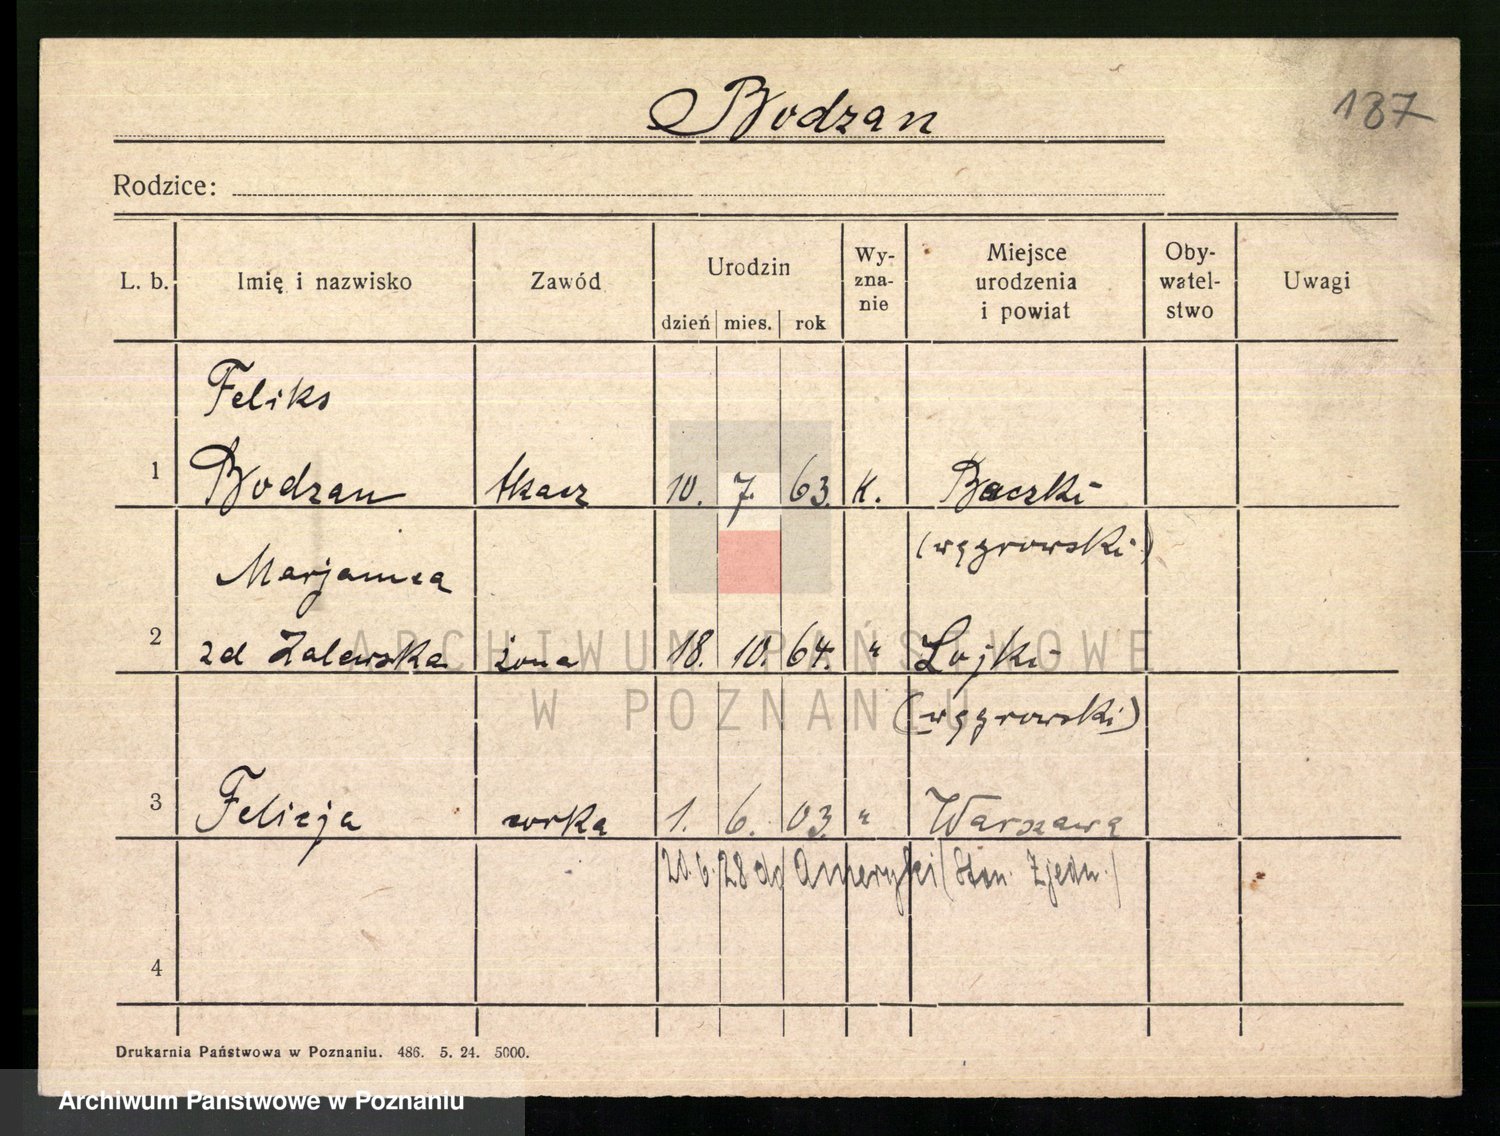 Bodzan
187
Rodzice:
L. b. Imię i nazwisko Zawód Urodzin dzień mies. rok Wy-zna-nie Miejsce urodzenia i powiat Oby-watel-stwo Uwagi
Feliks
1 Bodzan tkacz 10. 7. 63. k. Baczki
(węgrowski)
Marjanna
2 zd Zalewska żona 18. 10. 64. " Lojki
(węgrowski)
3 Felicja córka 1. 6. 03. " Warszawa
20.6.28 do Ameryki (Stan. Zjedn.)
4
Drukarnia Państwowa w Poznaniu. 486. 5. 24. 5000.
ARCHIWUM PAŃSTWOWE
W POZNANIU
Archiwum Państwowe w Poznaniu